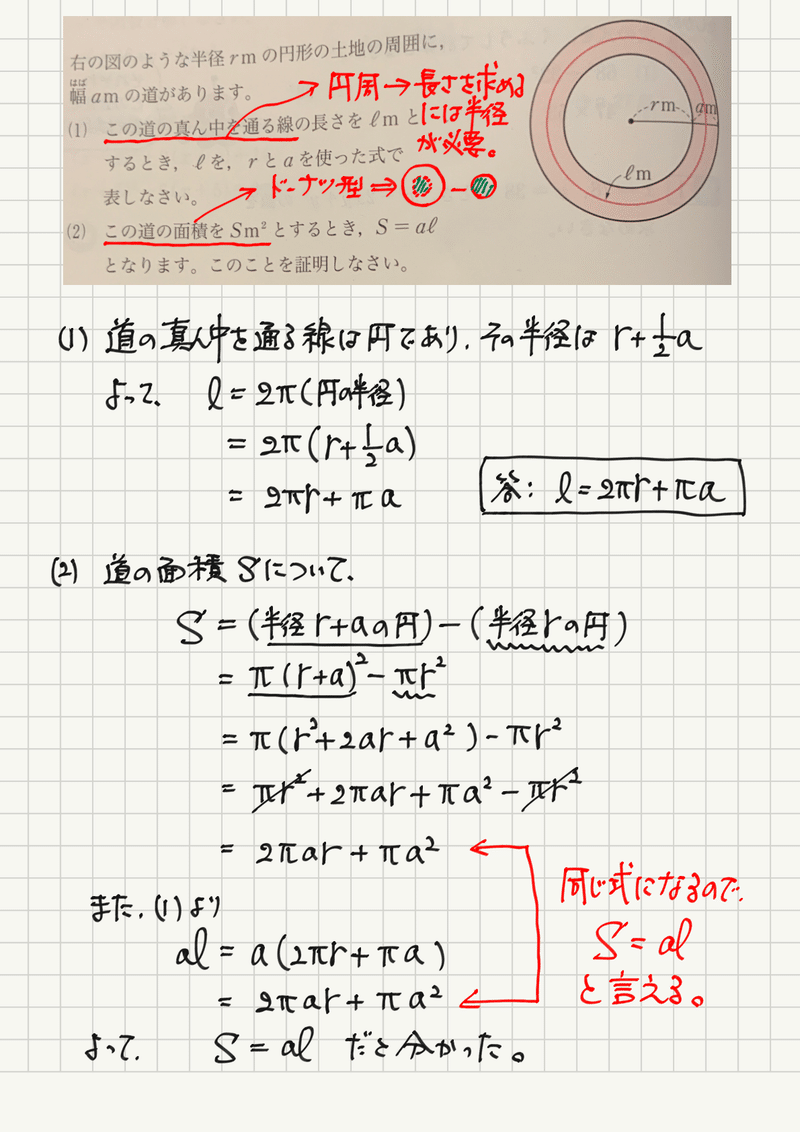 右の図のような半径 r m の円形の土地の周囲に,
はば
幅 a m の道があります。
(1) この道の真ん中を通る線の長さを ℓ m と
するとき, ℓ を, r と a を使った式で
表しなさい。
(2) この道の面積を S m² とするとき, S = aℓ
となります。このことを証明しなさい。
円周 → 長さを求める
には半径
が必要。
ドーナツ型 ⇒ ◎ - ○
r m
a m
ℓ m
(1) 道の真ん中を通る線は円であり, その半径は r+1/2a
よって, ℓ = 2π(円の半径)
= 2π(r+1/2a)
= 2πr+πa
答: ℓ=2πr+πa
(2) 道の面積 S について,
S = (半径 r+a の円) - (半径 r の円)
= π(r+a)² - πr²
= π(r²+2ar+a²) - πr²
= πr²+2πar+πa²-πr²
= 2πar+πa²
また, (1)より
aℓ = a(2πr+πa)
= 2πar+πa²
よって, S = aℓ だと分かった。
同じ式になるので,
S = aℓ
と言える。